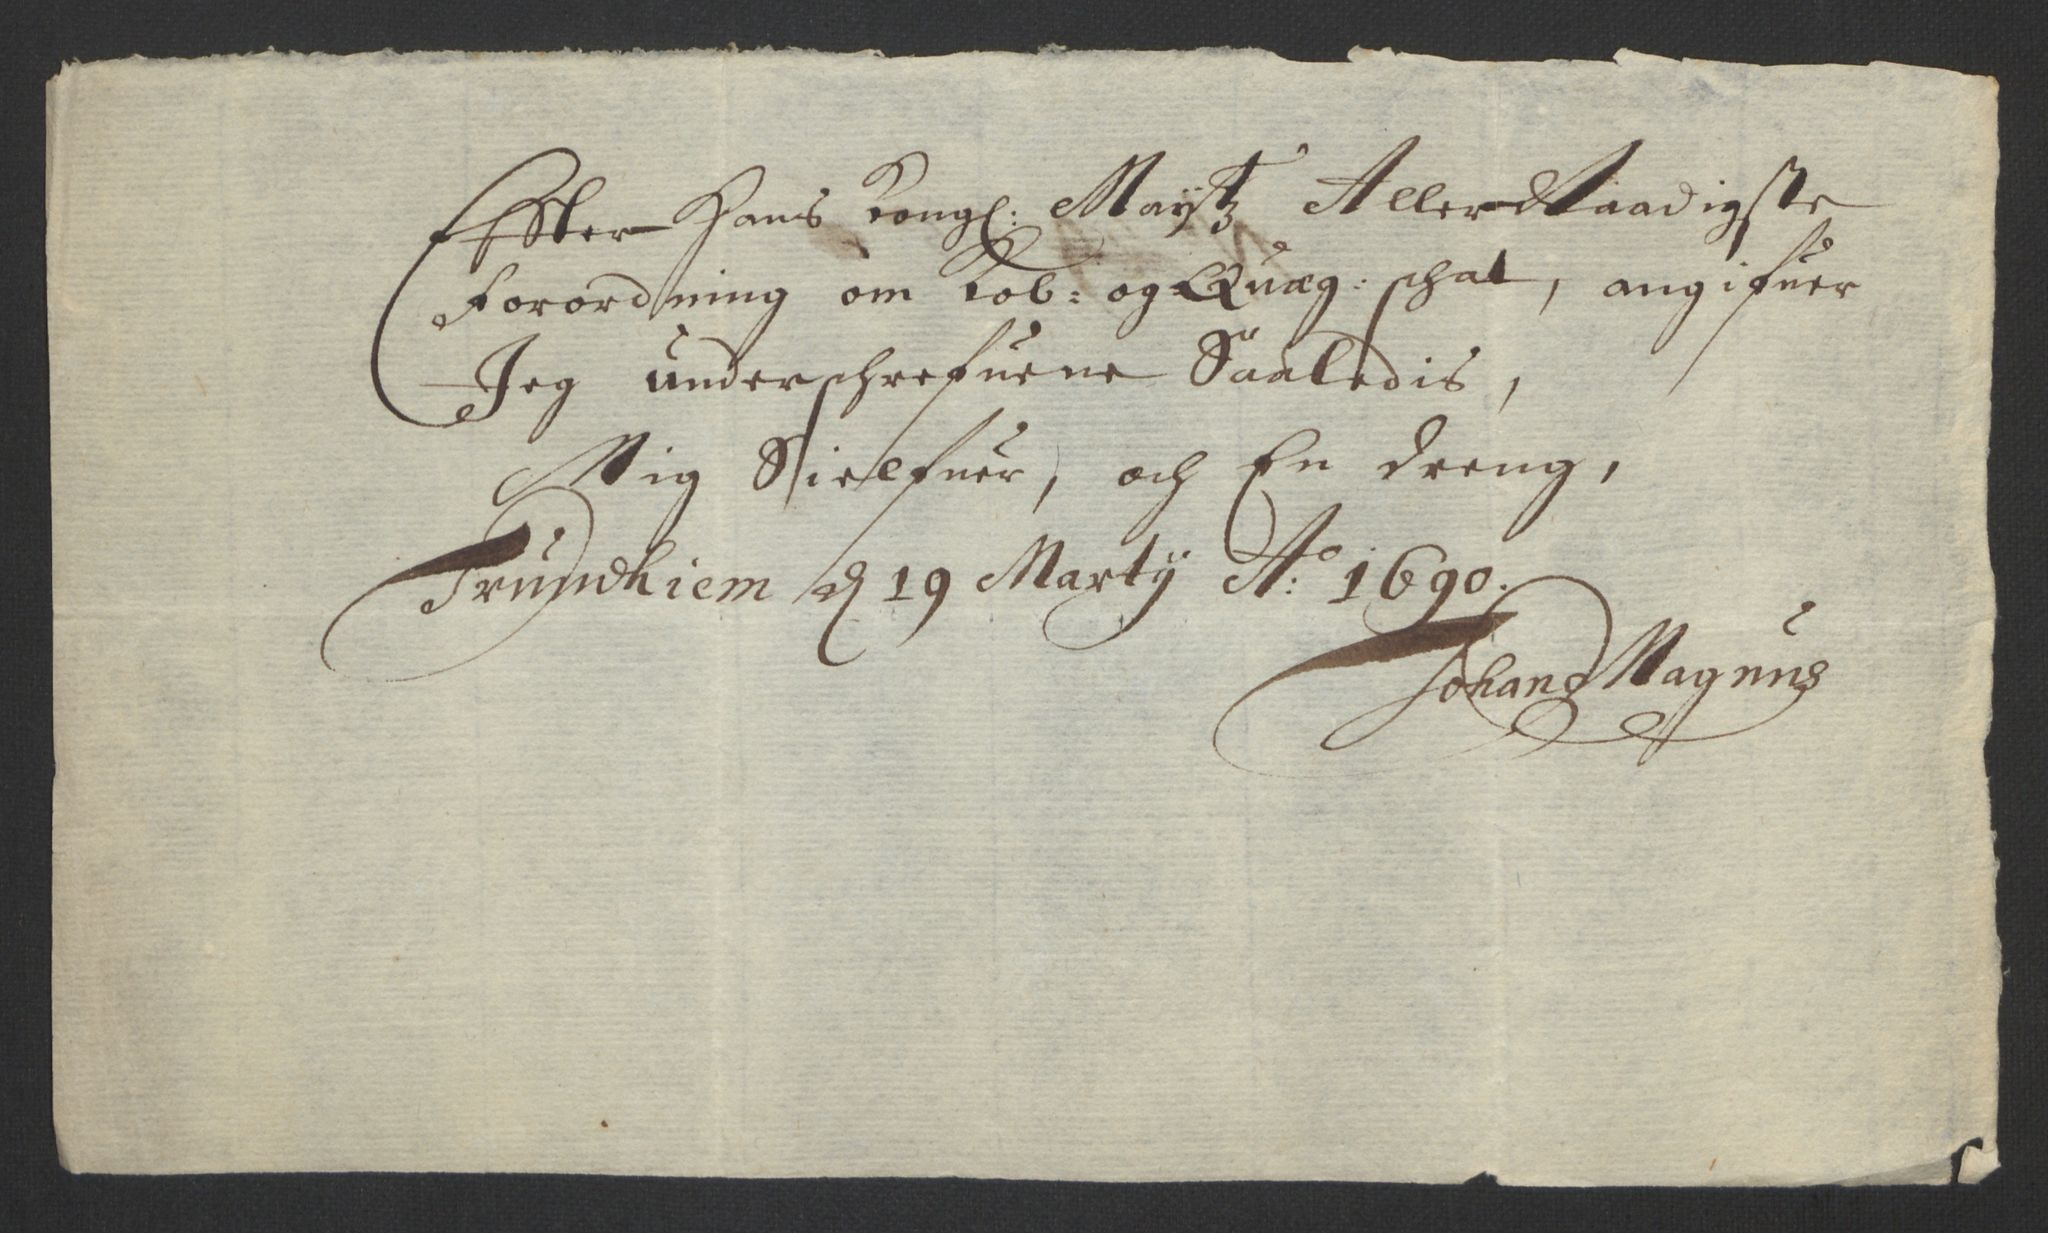 Effter Hans Kongl: Maÿtz AllerNaadigste
forordning om Kob: og Quæg: schat, angifuer
Jeg underschrefuene Saaledis,
Mig Sielfuer, och En dreng,
Trundhiem d 19 Martÿ Ao: 1690.
Johans Magnus